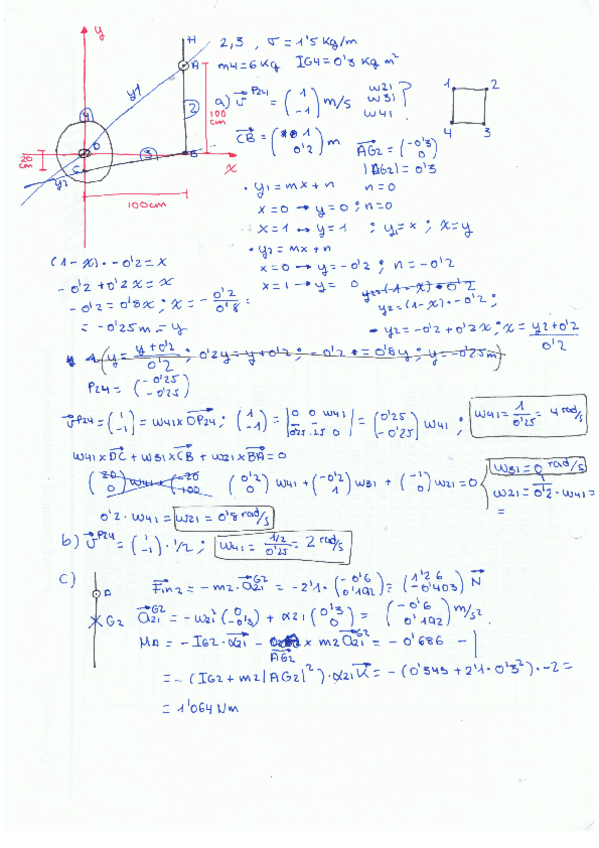 y
H
A
y1
2
100 cm
4
O
3
B
x
C
20 cm
y2
100cm
2,3 , σ = 1'5 Kg/m
m4=6 Kg IG4=0'3 Kg m²
a) v⃗^P24 = (1 -1) m/s w21 w31 w41 ?
1 2
4 3
CB = ( 1 0'2) m AG2 = (-0'3 0)
|AG2| = 0'3
· y1 = mx + n n=0
x=0 → y=0 ; n=0
x=1 → y=1 ; y1=x ; x=y
· y2 = mx + n
x=0 → y=-0'2 ; n=-0'2
x=1 → y= 0
y2=(1-x)·-0'2 ;
- y2=-0'2+0'2x ; x= (y2+0'2)/0'2
(1-x)·-0'2=x
-0'2+0'2x=x
-0'2=0'8x ; x=-0'2/0'8 :
= -0'25m = y
(y= (y+0'2)/0'2 ; 0'2y=y+0'2 ; -0'2 = 0'8y ; y=-0'25m)
P24= (-0'25 -0'25)
v⃗^P24=(1 -1)=w41×OP24 ; (1 -1)=|0 0 w41 0.25 .25 0|=(0'25 -0'25) w41 ; w41= 1/0'25 = 4 rad/s
w41×DC + w31×CB + w21×BA=0
(20 0) w41 + (-20 +100) (0'2 0) w41 + (-0'2 1) w31 + (-1 0) w21=0
w31=0 rad/s
w21=0'2·w41=
=
0'2·w41=w21=0'8 rad/s
b) v⃗^P24=(1 -1)·1/2 ; w41= (1/2)/0'25 = 2 rad/s
c)
A
G2
Fin2 = -m2·a21^G2 = -2'1·(-0'6 0'192)=(1'26 -0'403) N
a21^G2=-w21²(0 -0'3) + α21(0'3 0)= (-0'6 0'192) m/s².
MA = -IG2·α21 - AG2 × m2 a21^G2 = -0'686 -
= -(IG2+m2|AG2|²)·α21 K = -(0'343+2'1·0'3²)·-2=
= 1'064 Nm